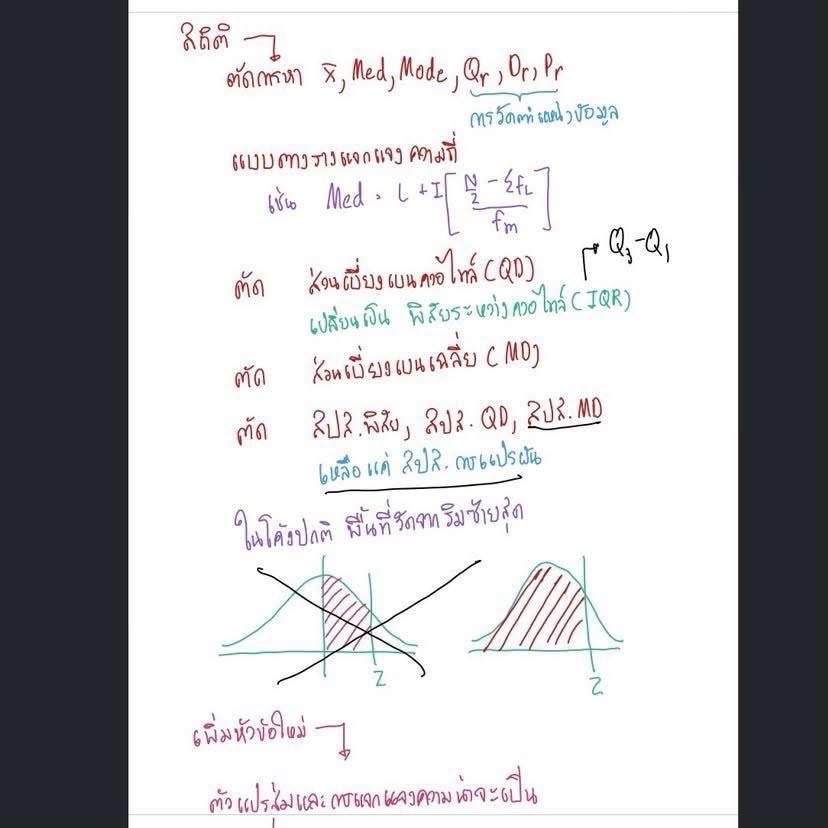 สถิติ
ตัดการหา x̄, Med, Mode, Qr, Dr, Pr
การวัดตำแหน่งข้อมูล
แบบตารางแจกแจงความถี่
เช่น Med = L + I [ (N/2 - Σf_L) / f_m ]
Q₃-Q₁
ตัด ส่วนเบี่ยงเบนควอไทล์ (QD)
เปลี่ยนเป็น พิสัยระหว่างควอไทล์ (IQR)
ตัด ส่วนเบี่ยงเบนเฉลี่ย (MD)
ตัด สปส.พิสัย, สปส. QD, สปส. MD
เหลือแค่ สปส. การแปรผัน
ในโค้งปกติ พื้นที่วัดจากริมซ้ายสุด
Z Z
เพิ่มหัวข้อใหม่
ตัวแปรสุ่มและการแจกแจงความน่าจะเป็น